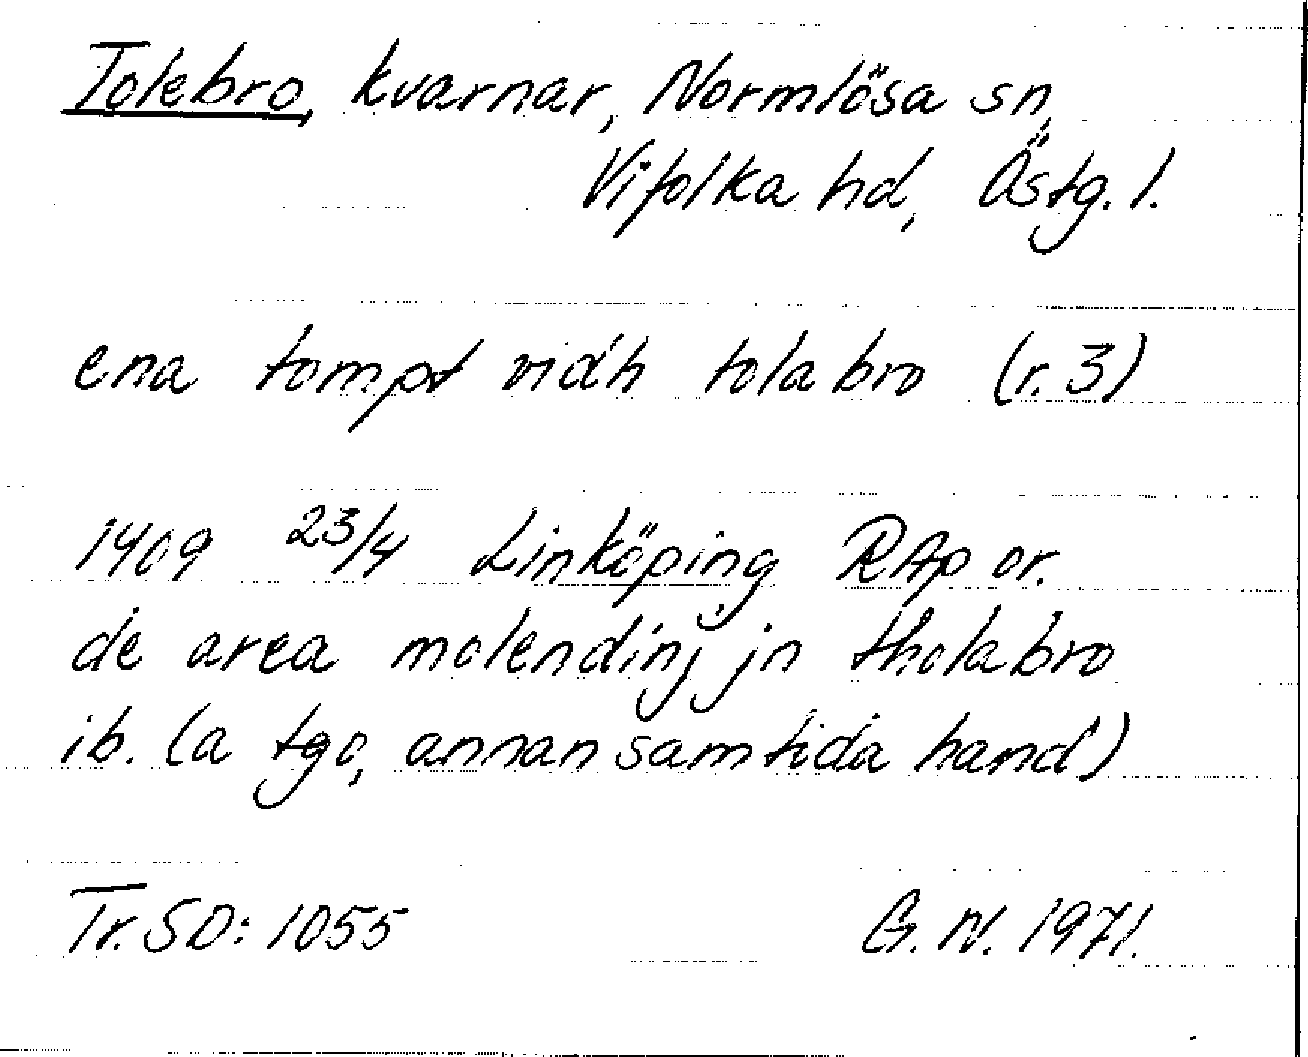 Tolebro, kvarnar, Normlösa sn,
Vifolka hd, Östg. l.
ena tompt vidh tolabro (r. 3)
1409 23/4 Linköping RAp or.
de area molendinj jn tholabro
ib. (a tgo, annan samtida hand)
Tr. SD: 1055 G. N. 1971.